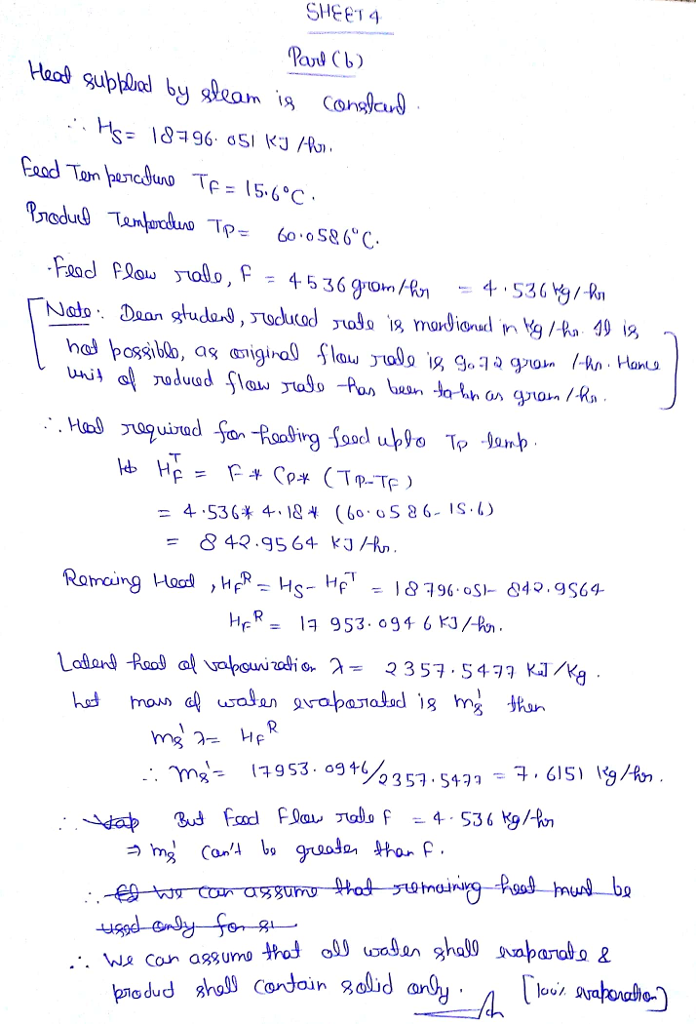 SHEET 4
Part (b)
Heat supplied by steam is constant.
∴ HS = 18796.051 KJ/hr.
Feed Temperature TF = 15.6°C.
Product Temperature TP = 60.0586°C.
Feed Flow rate, F = 4536 gram/hr = 4.536 kg/hr
[Note: Dear student, reduced rate is mentioned in kg/hr. It is
not possible, as original flow rate is 9072 gram /hr. Hence
unit of reduced flow rate has been taken as gram/hr.]
∴ Heat required for heating feed upto TP temp.
HF^T = F * CP * (TP-TF)
= 4.536 * 4.18 * (60.0586-15.6)
= 842.9564 KJ/hr.
Remaing Heat, HF^R = HS - HF^T = 18796.051- 842.9564
HF^R = 17953.0946 KJ/hr.
Latent heat of vapourization λ = 2357.5477 KJ/Kg.
Let mass of water evaporated is ms' then
ms' λ = HF^R
∴ ms' = 17953.0946/2357.5477 = 7.6151 kg/hr.
∴ But Feed Flow rate F = 4.536 kg/hr
⇒ ms' can't be greater than F.
∴ we can assume that remaining heat must be
used only for
∴ We can assume that all water shall evaporate &
product shall contain solid only. [100% evaporation]